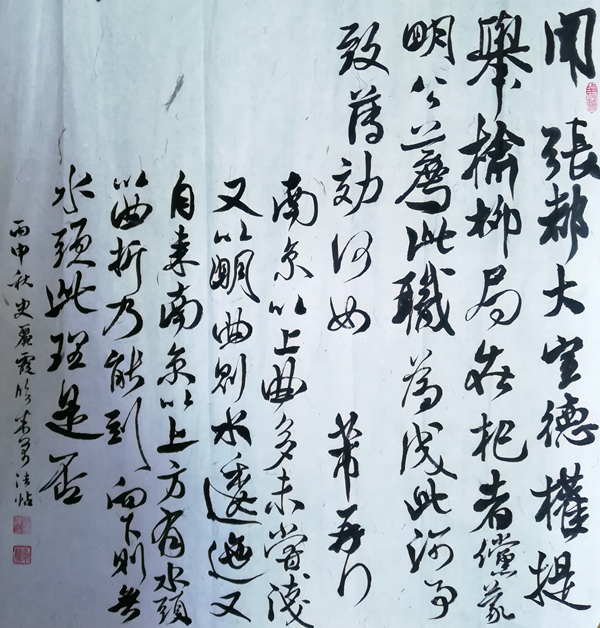 聞張都大宣德權提
舉榆柳局在杞者儻蒙
明公薦此職為成此河事
致薄効何如 芾再行
南京以上曲多未嘗淺
又以明曲則水逶迤又
自來南京以上方有水頭
以曲折乃能到向下則無
水頭此理是否
丙申秋史麗霞臨米芾法帖